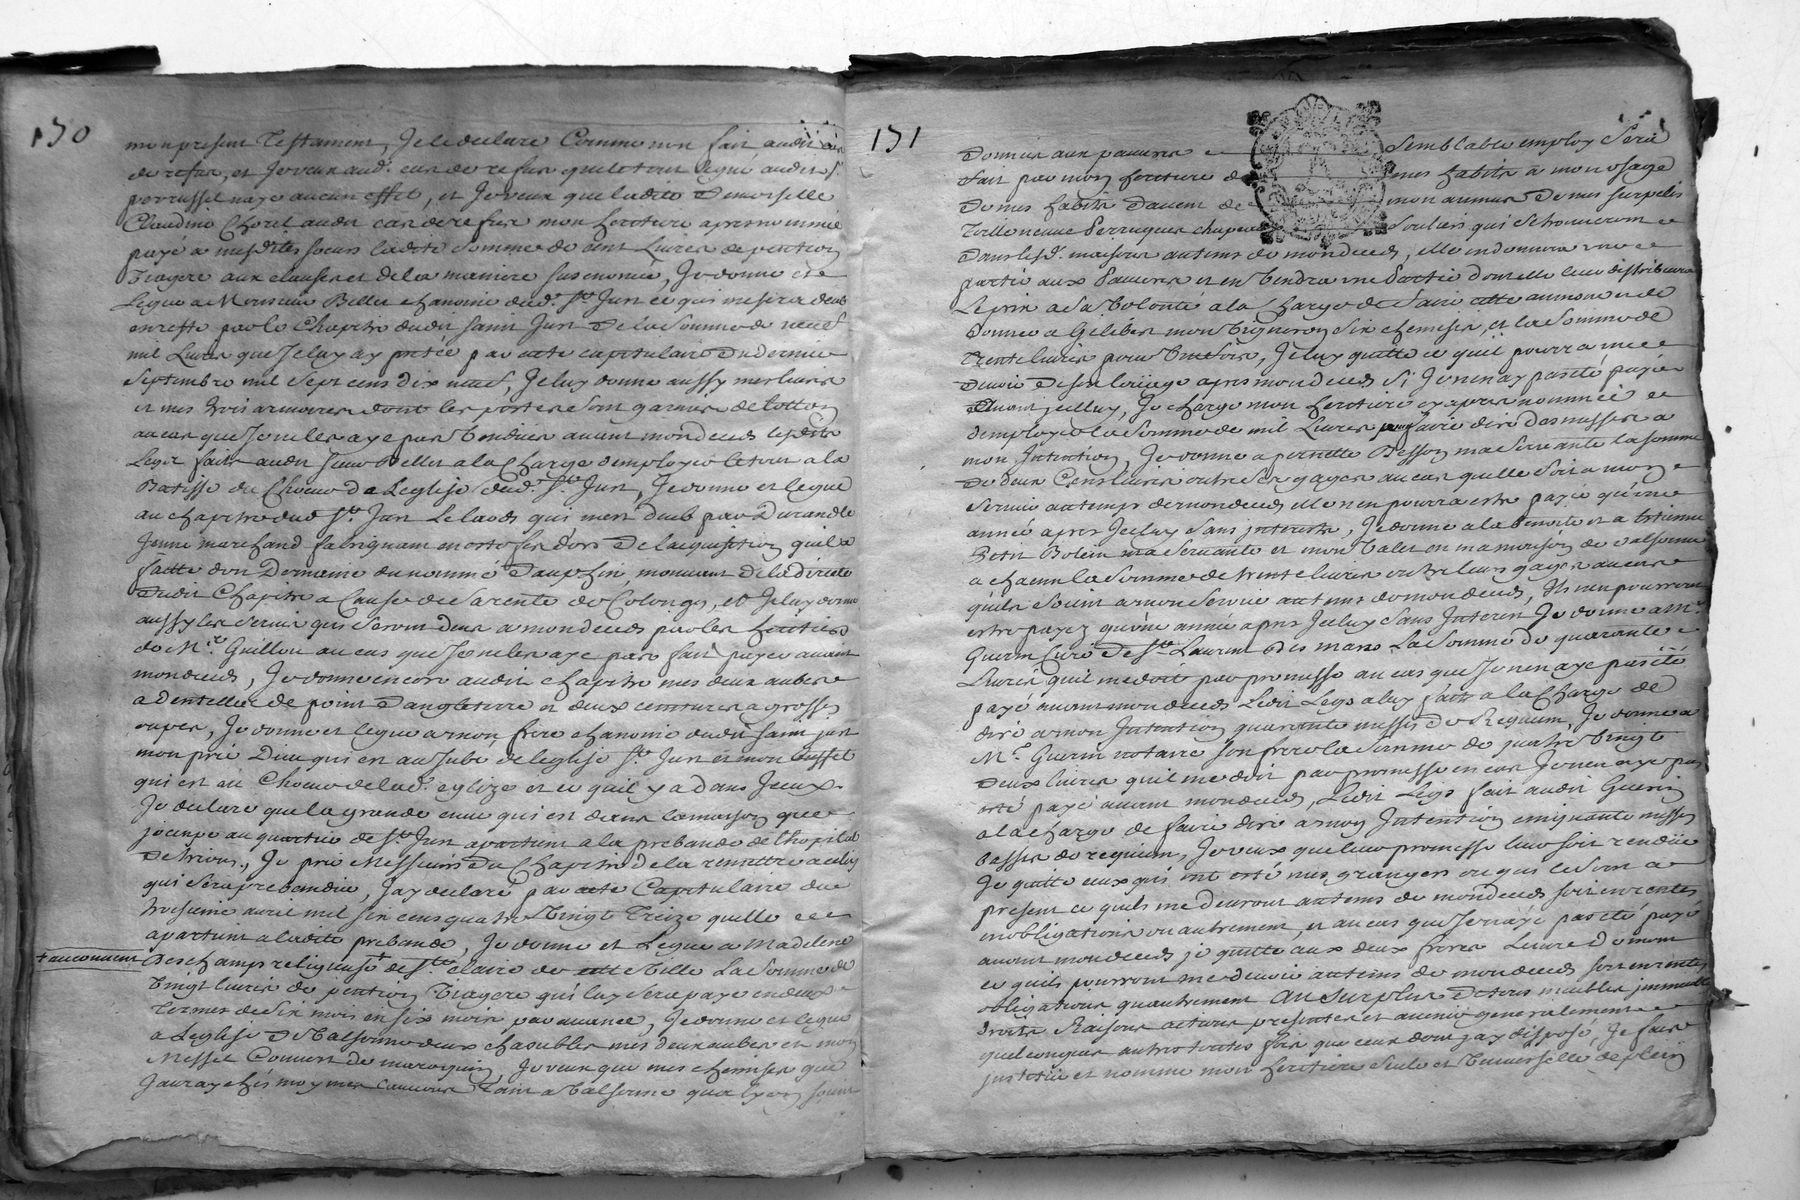 170
mon present Testament, Je le declare Comme non fait audit cas
de refus, et Je veux aud. cas de refus que le tout legué audit Sr.
perrussel naye aucun effet, et Je veux que ladite Demoiselle
Claudine Choret audit cas de refus mon heritiere apres nommée
paye a mesdites soeurs ladite somme de cent Livres de pention
Viagere aux clauses et de la maniere susenoncée, Je donne et
Legue a Monsieur Bellet chanoine dud. St. Just ce qui me sera deub
en reste par le Chapitre dudit saint Just De la Somme de neuf
mil Livres que Je luy ay pretée par acte capitulaire Du dernier
Septembre mil Sept cens dix neuf, Je luy donne aussy mes livres
et mes trois armoires dont les portes sont garnies de lotton
au cas que Je ne les aye pas Vendues avant mon deceds lesdits
Legs faits audit sieur Bellet a la Charge d'employer le tout a la
Batisse du Choeur De Leglise dud. St. Just, Je donne et legue
au chapitre dud St. Just Le laods qui mest deub par Durand le
Jeune marchand fabriquant en etofes d'ors De laquisition quil a
faitte d'un Domaine du nommé Dauphin, mouvant de la directe
dudit Chapitre a Cause de sa rente de Colonges, et Je luy donne
aussy les servis qui seront deus a mon deceds par les heritiers
de Mr. Guillon au cas que Je ne les aye pas fait payer avant
mon deceds, Je donne encore audit chapitre mes deux aubes
a dentelles de point D'angleterre et deux ceintures a grosses
Je donne et legue a mon frere chanoine dudit saint just
mon prie Dieu qui est au Jubé de leglise St. Just et mon buffet
qui est au Choeur de lad. eglize et ce quil y a dans Jceux.
Je declare que la grande cuve qui est dans la maison que
j'occupe au quartier de St. Just apartient a la prebande de lhopital
Je prie Messieurs Du Chapitre de la remettre a celuy
qui sera prebandier, Jay declaré par acte Capitulaire du
troisieme avril mil six cens quatre Vingt Treize quelle
apartient a ladite prebande, Je donne et Legue a Madelene
+ au couvent
Deschamps religieuse + de Ste. claire de cette Ville La somme de
Vingt livres de pention Viagere qui luy sera payé en deux
Termes de six mois en six mois par avance, Je donne et legue
a Leglise De Valsonne deux chasubles mes deux aubes et mon
Messel Couvert de maroquin, Je veux que mes chemises que
Jauray chés moy mes Tant a Valsonne qua lyon soient
171
Donnés aux pauvres Semblable employ Sera
fait par mon heritiere de mes habits a mon usage
De mes habits Davent de mon aumus De mes surpelis
Toille neuve Perruques chapeau Souliers qui se trouveront
Dans lesd. maisons au tems de mon deceds, elle en donnera une
partie aux Pauvres et en Vendra une Partie dont elle leur distribuera
Le prix a sa Volonté a la Charge de faire cette aumone et de
Donner a Gilibert mon Vigneron six chemises, et la somme de
Trente livres pour Une fois, Je luy quitte ce qu'il pourra me
Devoir De son loüage apres mon deceds Si Je n'en ay pas eté payé
avant jcelluy, Je charge mon heritiere cy apres nommée
d'employer la somme de mil Livres pour faire dire des messes a
mon Intention, Je donne a pernette Besson ma servante la somme
De deux Cens livres outre ses gages au cas qu'elle soit a mon
service au temps de mon deceds elle n'en pourra estre payée qu'une
année apres Jceluy sans interests, Je donne a la benoite et a Estienne
Petit Bolein ma servante et mon Valet en ma maison de Valsonne
a chacun la somme de trente livres outre leurs gages au cas
quils soient a mon service au tems de mon deceds, Ils n'en pourront
estre payez qu'une année apres Jceluy sans Interest Je donne a Mr.
Guerin Curé De St. Laurent La somme de quarante
Livres quil me doit par promesse au cas que Je n'en aye pas eté
payé avant mon deceds Ledit Legs a luy fait a la Charge de
dire a mon Intention quarante messes de Requiem, Je donne a
Mr. Guerin notaire son frere la somme de quatre Vingt
Deux livres quil me doit par promesse en cas Je n'en aye pas
eté payé avant mon deceds, Ledit Legs fait audit Guerin
a la charge de faire dire a mon Intention cinquante messes
basses de requiem, Je veux que leur promesse leur soit rendüe
Je quitte ceux qui ont esté mes grangers ou qui le sont a
present ce quils me devront au tems de mon deceds soit en rentes
en obligations ou autrement, et au cas que Je n'aye pas eté payé
avant mon deceds je quitte aux deux freres
ce quils pourront me devoir au tems de mon deceds soit en rentes
obligations quautrement Au surplus De tous meubles immeubles
droits Raisons actions presentes et avenir generalement
quelconques autres toutes fois que ceux dont jay disposé, Je fais
justitue et nomme mon heritiere seule et Universelle de plein